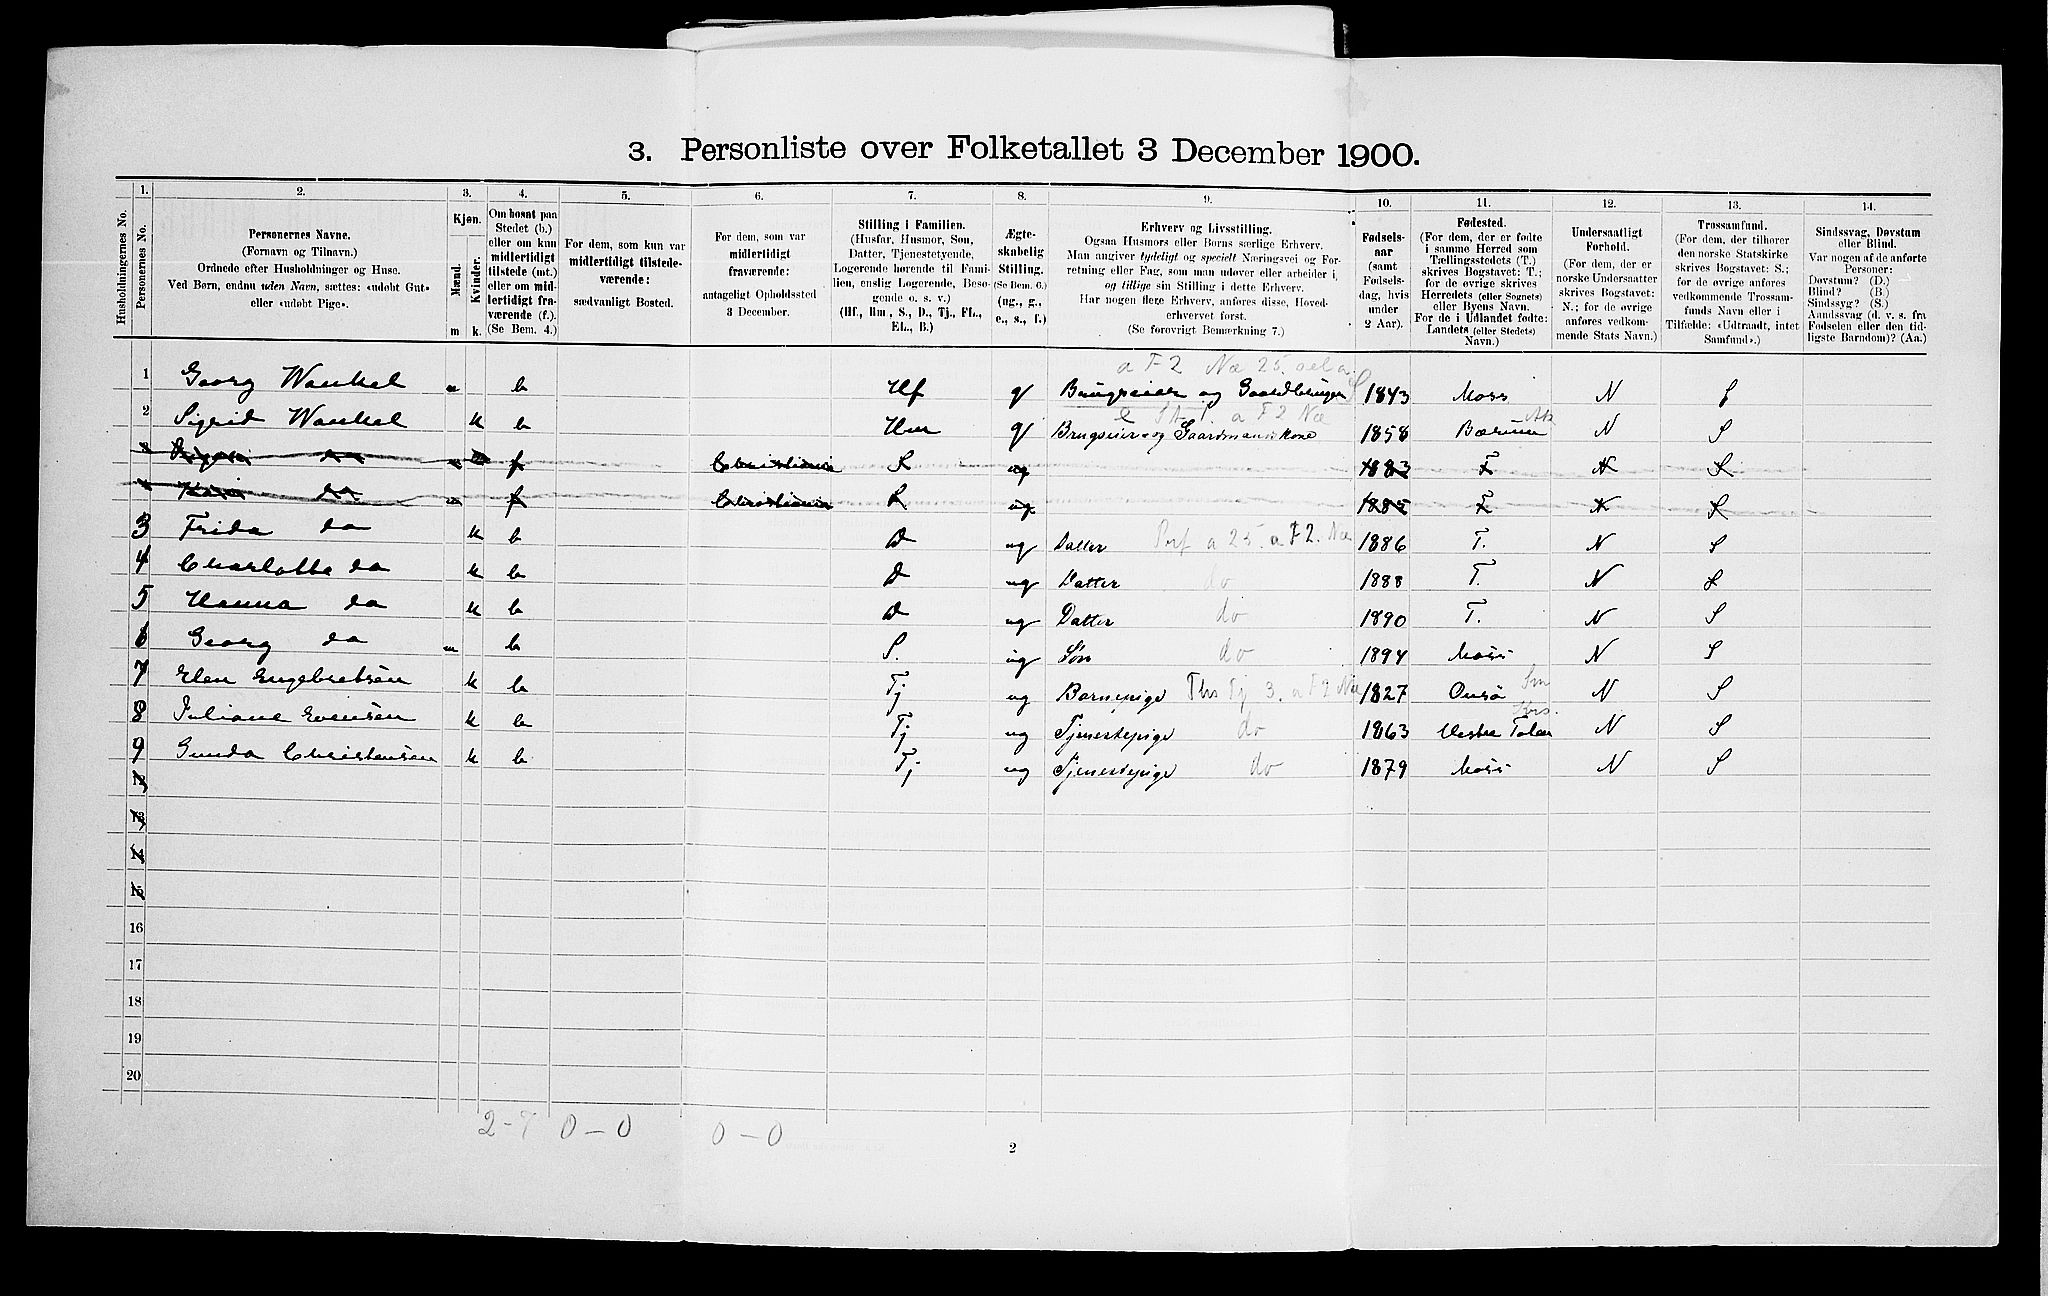 3. Personliste over Folketallet 3 December 1900.
Husholdningernes No.
1.
Personernes No.
2.
Personernes Navne.
(Fornavn og Tilnavn.)
Ordnede efter Husholdninger og Huse.
Ved Børn, endnu uden Navn, sættes: «udøbt Gut»
eller «udøbt Pige».
3.
Kjøn.
Mænd.
Kvinder.
m
k.
4.
Om bosat paa
Stedet (b.)
eller om kun
midlertidigt
tilstede (mt.)
eller om mid-
lertidigt fra-
værende (f.).
(Se Bem. 4.)
5.
For dem, som kun var
midlertidigt tilstede-
værende:
sædvanligt Bosted.
6.
For dem, som var
midlertidigt
fraværende:
antageligt Opholdssted
3 December.
7.
Stilling i Familien.
(Husfar, Husmor, Søn,
Datter, Tjenestetyende,
Logerende hørende til Fami-
lien, enslig Logerende, Besø-
gende o. s. v.)
(Hf., Hm., S., D., Tj., FL.,
EL., B.)
8.
Ægte-
skabelig
Stilling.
(Se Bem. 6.)
(ug., g.,
e., s., f.)
9.
Erhverv og Livsstilling.
Ogsaa Husmors eller Børns særlige Erhverv.
Man angiver tydeligt og specielt Næringsvei og For-
retning eller Fag, som man udøver eller arbeider i,
og tillige sin Stilling i dette Erhverv.
Har nogen flere Erhverv, anføres disse, Hoved-
erhvervet først.
(Se forøvrigt Bemærkning 7.)
10.
Fødsels-
aar
(samt
Fødsels-
dag, hvis
under
2 Aar).
11.
Fødested.
(For dem, der er fødte
i samme Herred som
Tællingsstedets (T.)
skrives Bogstavet: T.;
for de øvrige skrives
Herredets (eller Sognets)
eller Byens Navn.
For de i Udlandet fødte:
Landets (eller Stedets)
Navn.)
12.
Undersaatligt
Forhold.
(For dem, der er
norske Undersaatter
skrives Bogstavet:
N.; for de øvrige
anføres vedkom-
mende Stats Navn.)
13.
Trossamfund.
(For dem, der tilhører
den norske Statskirke
skrives Bogstavet: S.;
for de øvrige anføres
vedkommende Trossam-
funds Navn eller i
Tilfælde: «Udtraadt, intet
Samfund».)
14.
Sindssvag, Døvstum
eller Blind.
Var nogen af de anførte
Personer:
Døvstum? (D.)
Blind? (B.)
Sindssyg? (S.)
Aandssvag (d. v. s. fra
Fødselen eller den tid-
ligste Barndom)? (Aa.)
a F2 Næ 25.
1 Georg Wankel m b Hf g Brugseier og Gaardbruger 1843 Moss N S
a F2 Næ
2 Sigrid Wankel k b Hm g Brugseier og Gaardmands Kone 1858 Bærum N S
do m f Christiania S ug 1883 T N S
do m f Christiania S ug 1885 T N S
3 Frida do k b D ug Datter a 25. a F2. Næ 1886 T. N S
4 Charlotte do k b D ug Datter do 1888 T. N S
5 Hanna do k b D ug Datter do 1890 T. N S
6 Georg do m b S. ug Søn do 1894 Moss N S
7 Elen Engebretsen k b Tj ug Barnepige Tj 3. a F2 Næ 1827 Onsø N S
8 Juliane Evensen k b Tj ug Tjenestepige do 1863 Vestre N S
9 Gunda Christensen k b Tj ug Tjenestepige do 1879 Moss N S
12
13
14
15
16
17
18
19
20
2-7 0-0 0-0
2